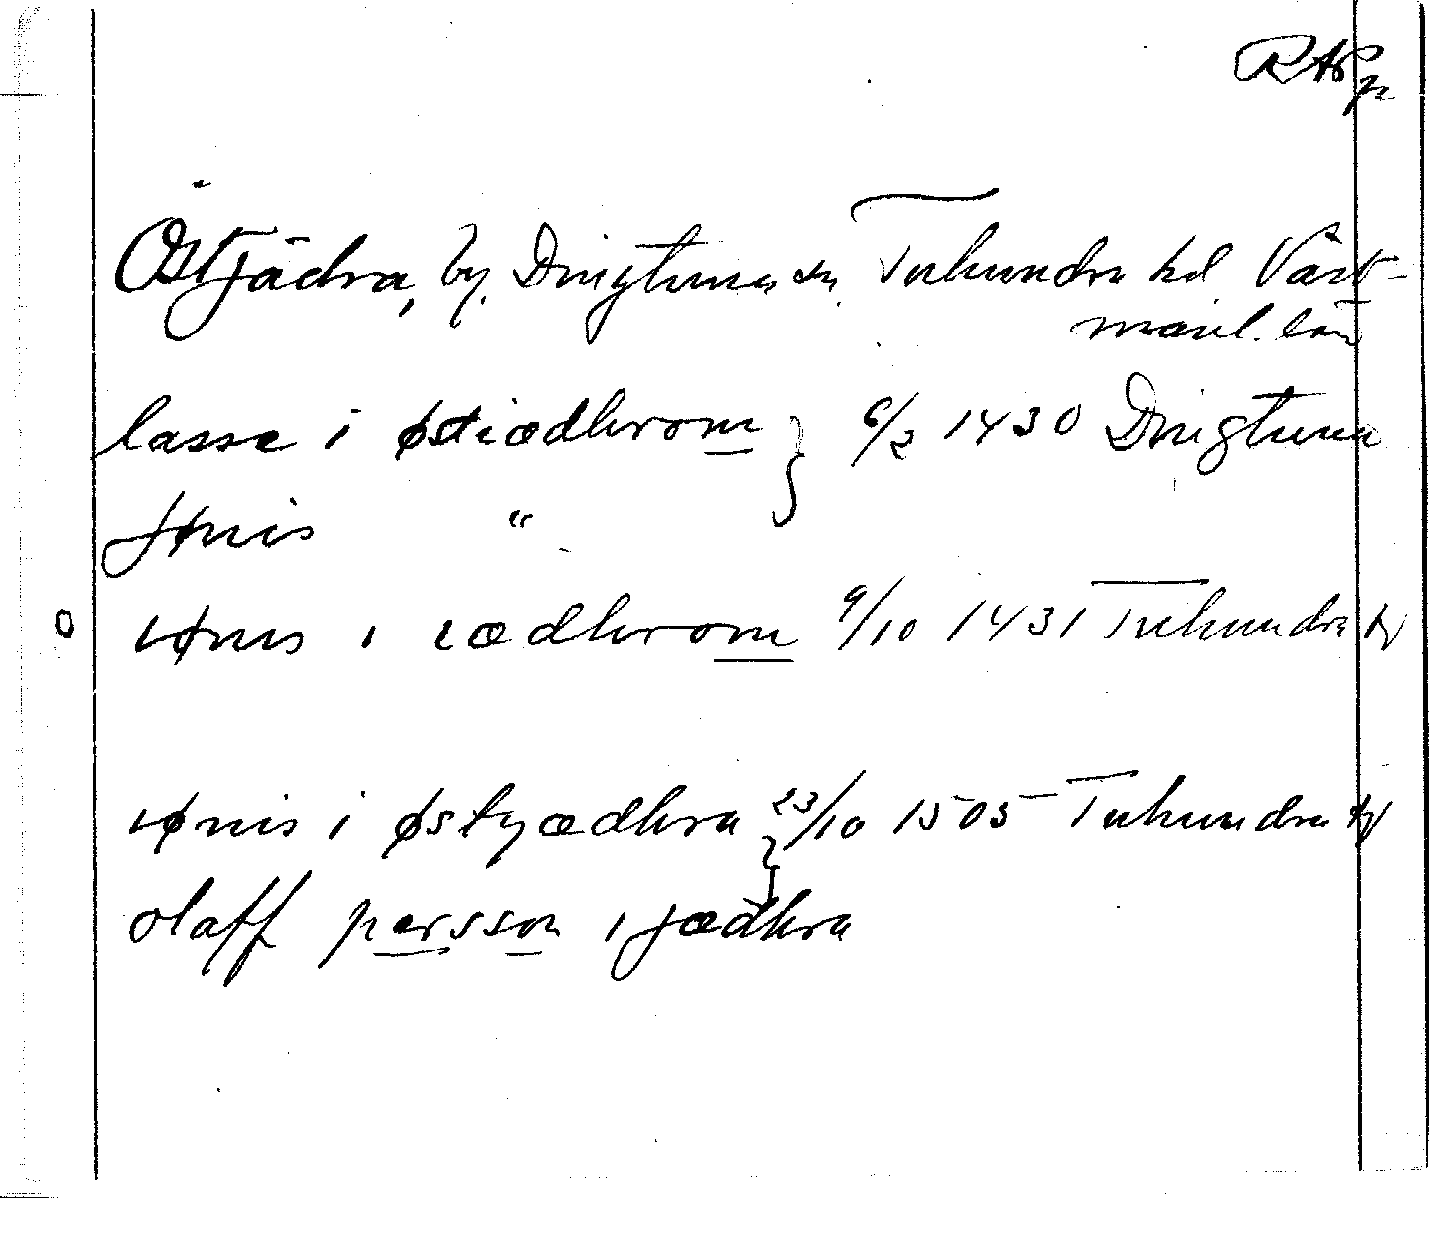 RAp
Östjädra, by, Dingtuna sn. Tuhundra hd Väst-
manl. län
lasse i østiædhrom } 6/2 1430 Dingtuna
Jønis "
iønis i iædhrom 9/10 1431 Tuhundra
iønis i østyædhra 23/10 1505 Tuhundra
olaff persson i jædhra